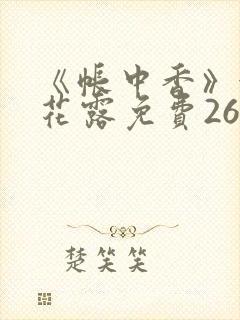 《帳中香》
花露免費26
楚笑笑